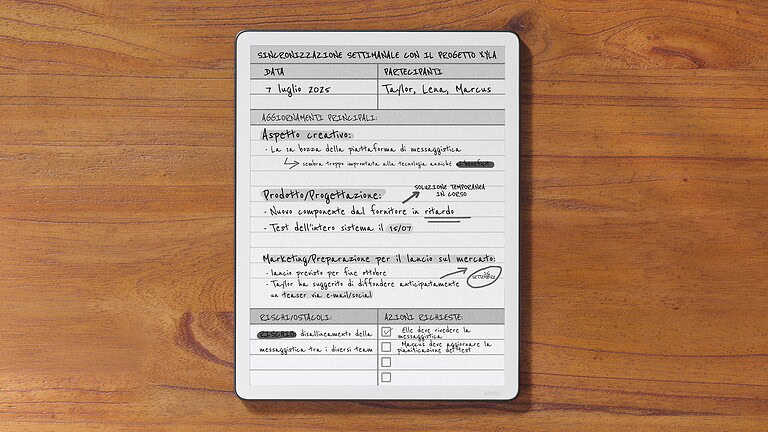 SINCRONIZZAZIONE SETTIMANALE CON IL PROGETTO XYLA
DATA
PARTECIPANTI
7 luglio 2025
Taylor, Lena, Marcus
AGGIORNAMENTI PRINCIPALI:
Aspetto creativo:
- La 1a bozza della piattaforma di messaggistica
sembra troppo improntata alla tecnologia anziché ai benefici
SOLUZIONE TEMPORANEA
IN CORSO
Prodotto/Progettazione:
- Nuovo componente dal fornitore in ritardo
- Test dell'intero sistema il 15/07
Marketing/Preparazione per il lancio sul mercato:
- lancio previsto per fine ottobre
- Taylor ha suggerito di diffondere anticipatamente
un teaser via e-mail/social
SETTEMBRE
RISCHI/OSTACOLI:
RISCHIO disallineamento della
messaggistica tra i diversi team
AZIONI RICHIESTE:
Elle deve rivedere la
messaggistica
Marcus deve aggiornare la
pianificazione del test